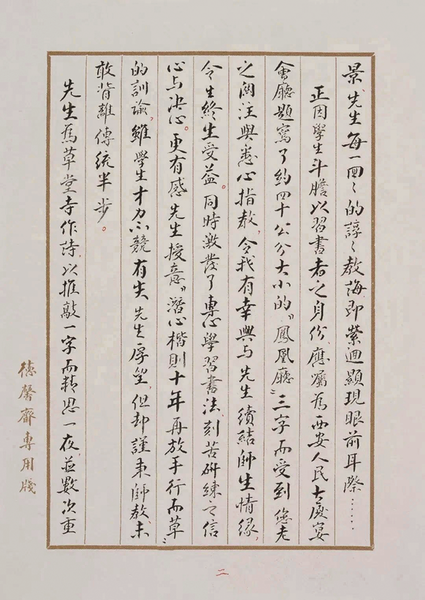 景 先生每一回々的諄々教誨即縈迴顯現眼前耳際……
正因學生斗膽以習書者之身份應囑為西安人民大廈宴
會廳題寫了約四十公分大小的“鳳凰廳”三字而受到您老
之關注與悉心指教，令我有幸與先生續結師生情緣，
令生終生受益。同時激發了專心學習書法刻苦研練之信
心与决心。更有感先生授意“潛心楷則十年再放手行而草”
的訓諭，雖學生才力不競有失先生厚望，但却謹秉師教未
敢背離傳統半步。
先生為草堂寺作詩，以推敲一字而精思一夜並數次重
德馨齋專用箋
二